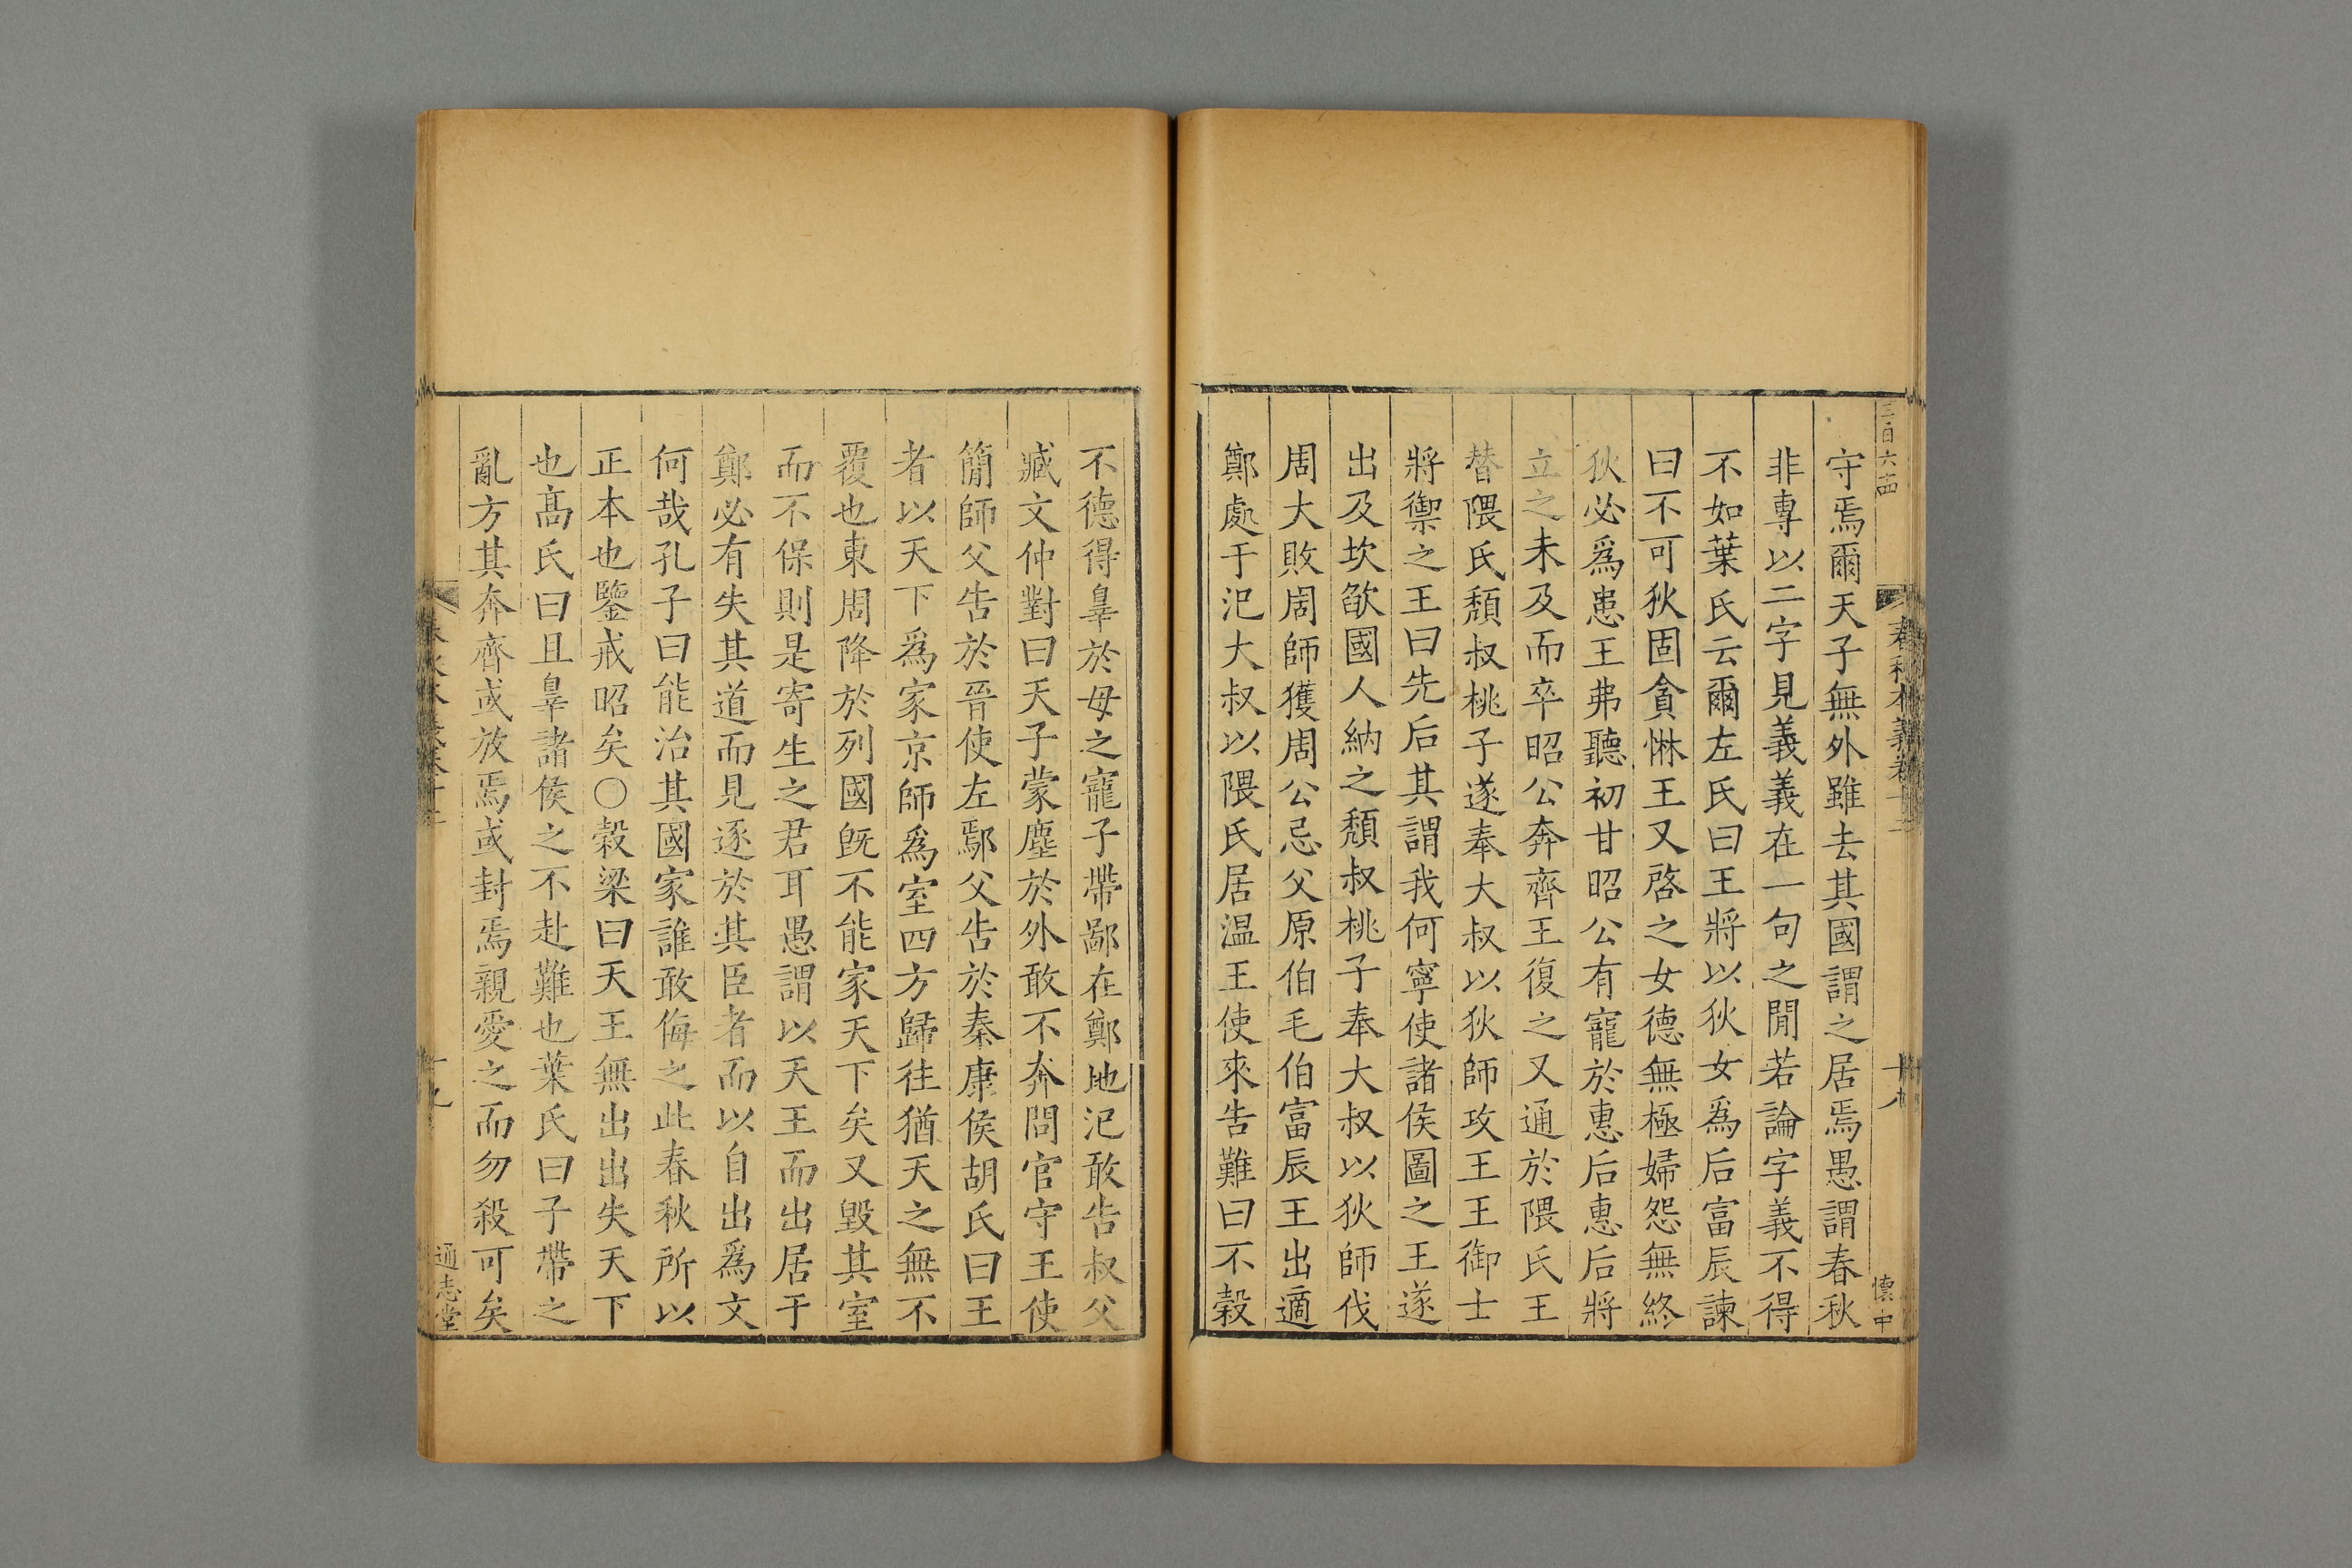 三百六西
春秋本義卷十二
十八
懐中
守焉爾天子無外雖去其國謂之居焉愚謂春秋
非專以二字見義義在一句之閒若論字義不得
不如葉氏云爾左氏曰王將以狄女爲后富辰諫
曰不可狄固貪惏王又啓之女德無極婦怨無終
狄必爲患王弗聽初甘昭公有寵於惠后惠后將
立之未及而卒昭公奔齊王復之又通於隗氏王
替隗氏頹叔桃子遂奉大叔以狄師攻王王御士
將禦之王曰先后其謂我何寧使諸侯圖之王遂
出及坎欿國人納之頹叔桃子奉大叔以狄師伐
周大敗周師獲周公忌父原伯毛伯富辰王出適
鄭處于氾大叔以隗氏居温王使來告難曰不榖
不德得辠於母之寵子帶鄙在鄭地氾敢告叔父
臧文仲對曰天子蒙塵於外敢不奔問官守王使
簡師父告於晉使左鄢父告於秦康侯胡氏曰王
者以天下爲家京師爲室四方歸往猶天之無不
覆也東周降於列國旣不能家天下矣又毀其室
而不保則是寄生之君耳愚謂以天王而出居于
鄭必有失其道而見逐於其臣者而以自出爲文
何哉孔子曰能治其國家誰敢侮之此春秋所以
正本也鑒戒昭矣○榖梁曰天王無出出失天下
也髙氏曰且辠諸侯之不赴難也葉氏曰子帶之
亂方其奔齊或放焉或封焉親愛之而勿殺可矣
十九
通志堂